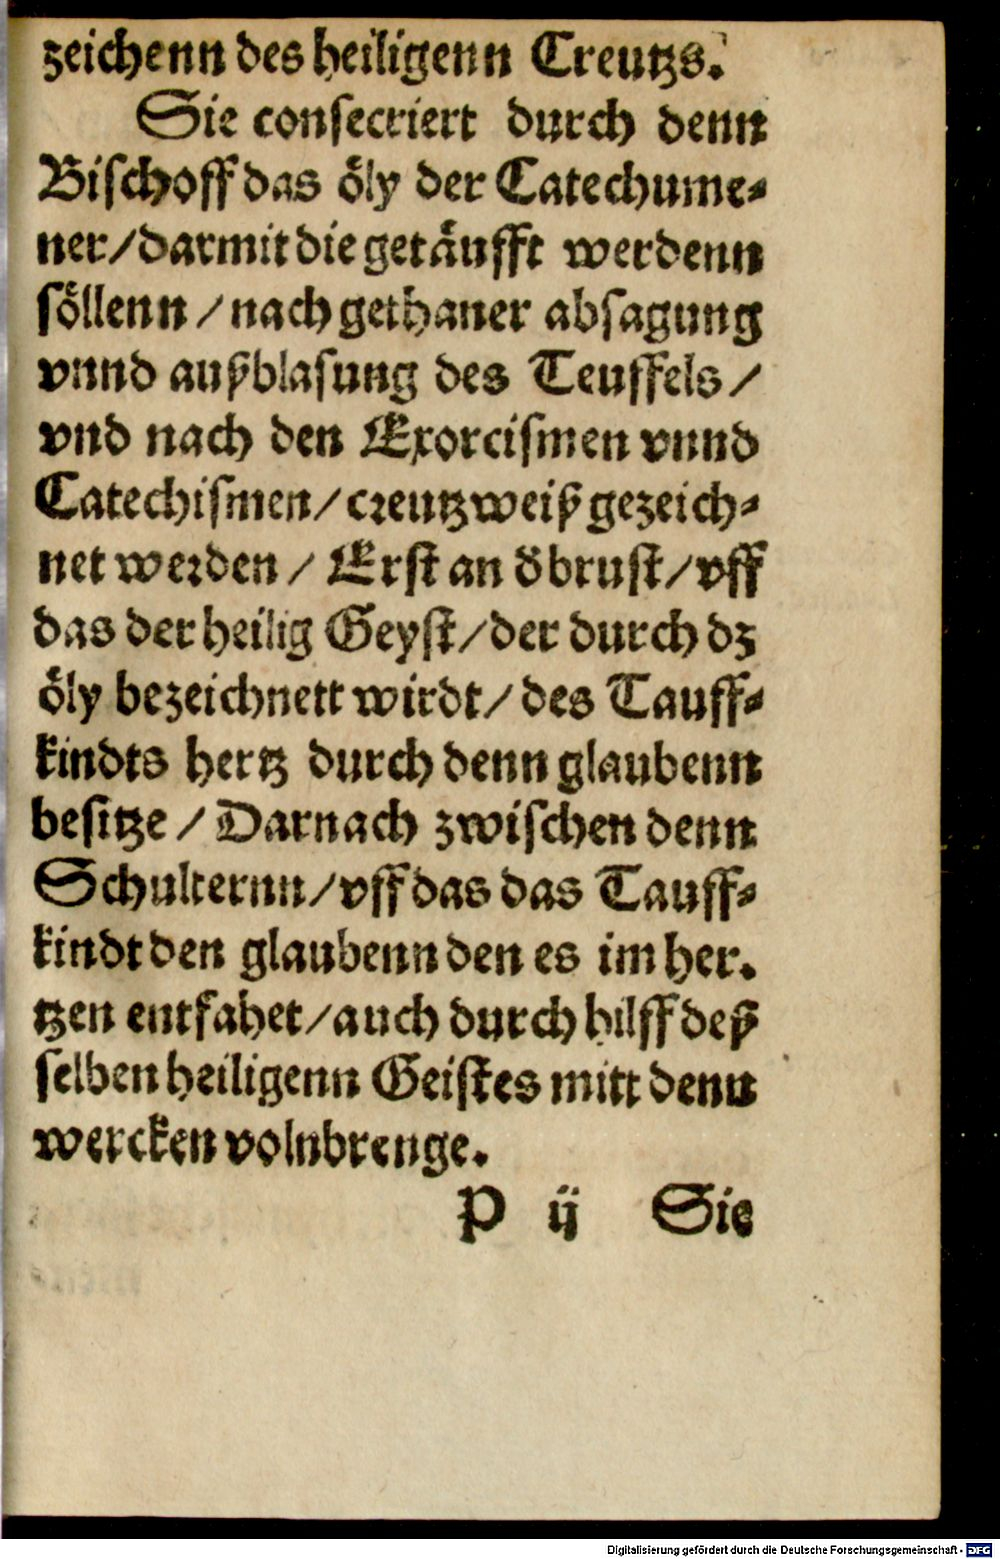 zeichenn des heiligenn Creutzs.
Sie consecriert durch denn
Bischoff das öly der Catechume-
ner/darmit die getäufft werdenn
söllenn / nach gethaner absagung
vnnd außblasung des Teuffels /
vnd nach den Exorcismen vnnd
Catechismen/ creutzweiß gezeich-
net werden / Erst an d̕ brust/vff
das der heilig Geyst/der durch dz
öly bezeichnett wirdt/ des Tauff-
kindts hertz durch denn glaubenn
besitze / Darnach zwischen denn
Schulternn/vff das das Tauff-
kindt den glaubenn den es im her.
tzen entfahet/auch durch hilff deß
selben heiligenn Geistes mitt denn
wercken volnbrenge.
P ij Sie
Digitalisierung gefördert durch die Deutsche Forschungsgemeinschaft - DFG